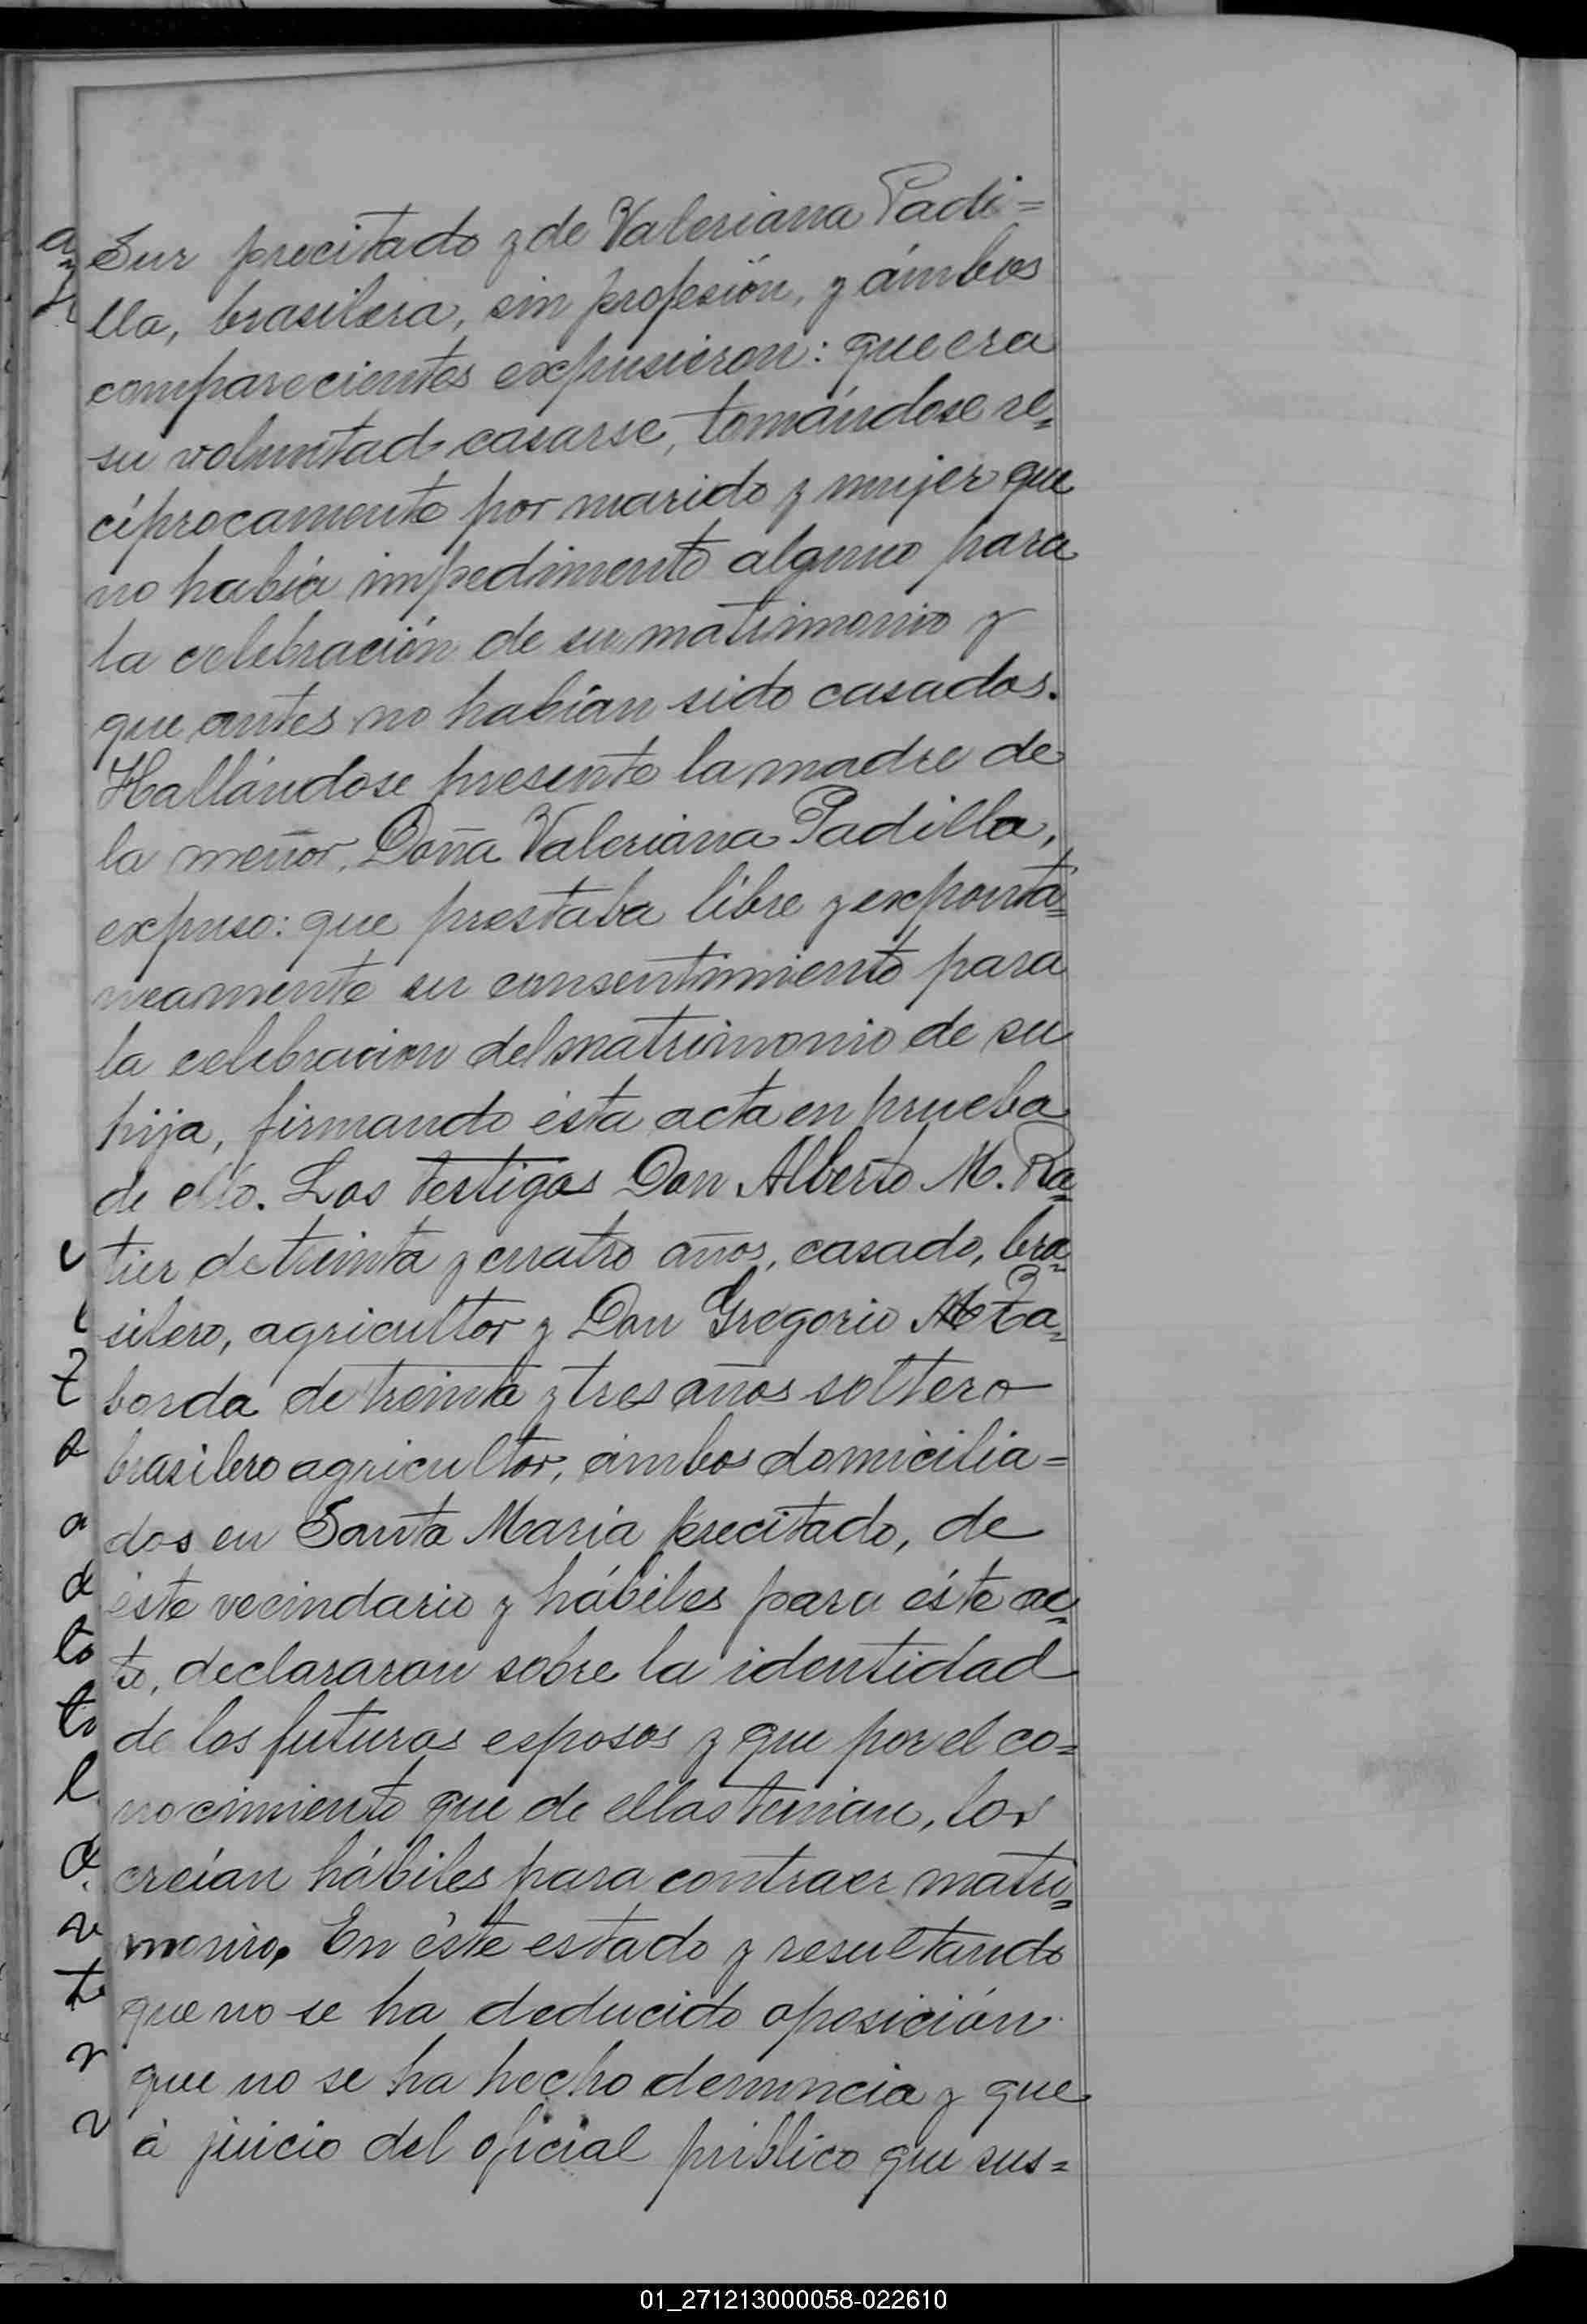 Sur precitado y de Valeriana Padi=
lla, brasilera, sin profesión, y ámbos
comparecientes expusieron: que era
su voluntad casarse, tomándose re=
ciprocamente por marido y mujer que
no había impedimento alguno para
la celebración de su matrimonio y
que antes no habían sido casados.
Hallándose presente la madre de
la menor, Doña Valeriana Padilla,
expuso: que prestaba libre y expontá=
neamente su consentimiento para
la celebracion del matrimonio de su
hija, firmando ésta acta en prueba
de ello. Los testigos Don Alberto M. Ra=
tier de treinta y cuatro años, casado, bra=
silero, agricultor y Don Gregorio Ta=
borda de treinta y tres años soltero
brasilero agricultor, ámbos domicilia=
dos en Santa María precitado, de
éste vecindario y hábiles para éste ac=
to, declararon sobre la identidad
de los futuros esposos y que por el co=
nocimiento que de ellos tenian, los
creían hábiles para contraer matri=
monio. En éste estado y resultando
que no se ha deducido oposición
que no se ha hecho denuncia y que
á juicio del oficial público que sus=
01_271213000058-022610